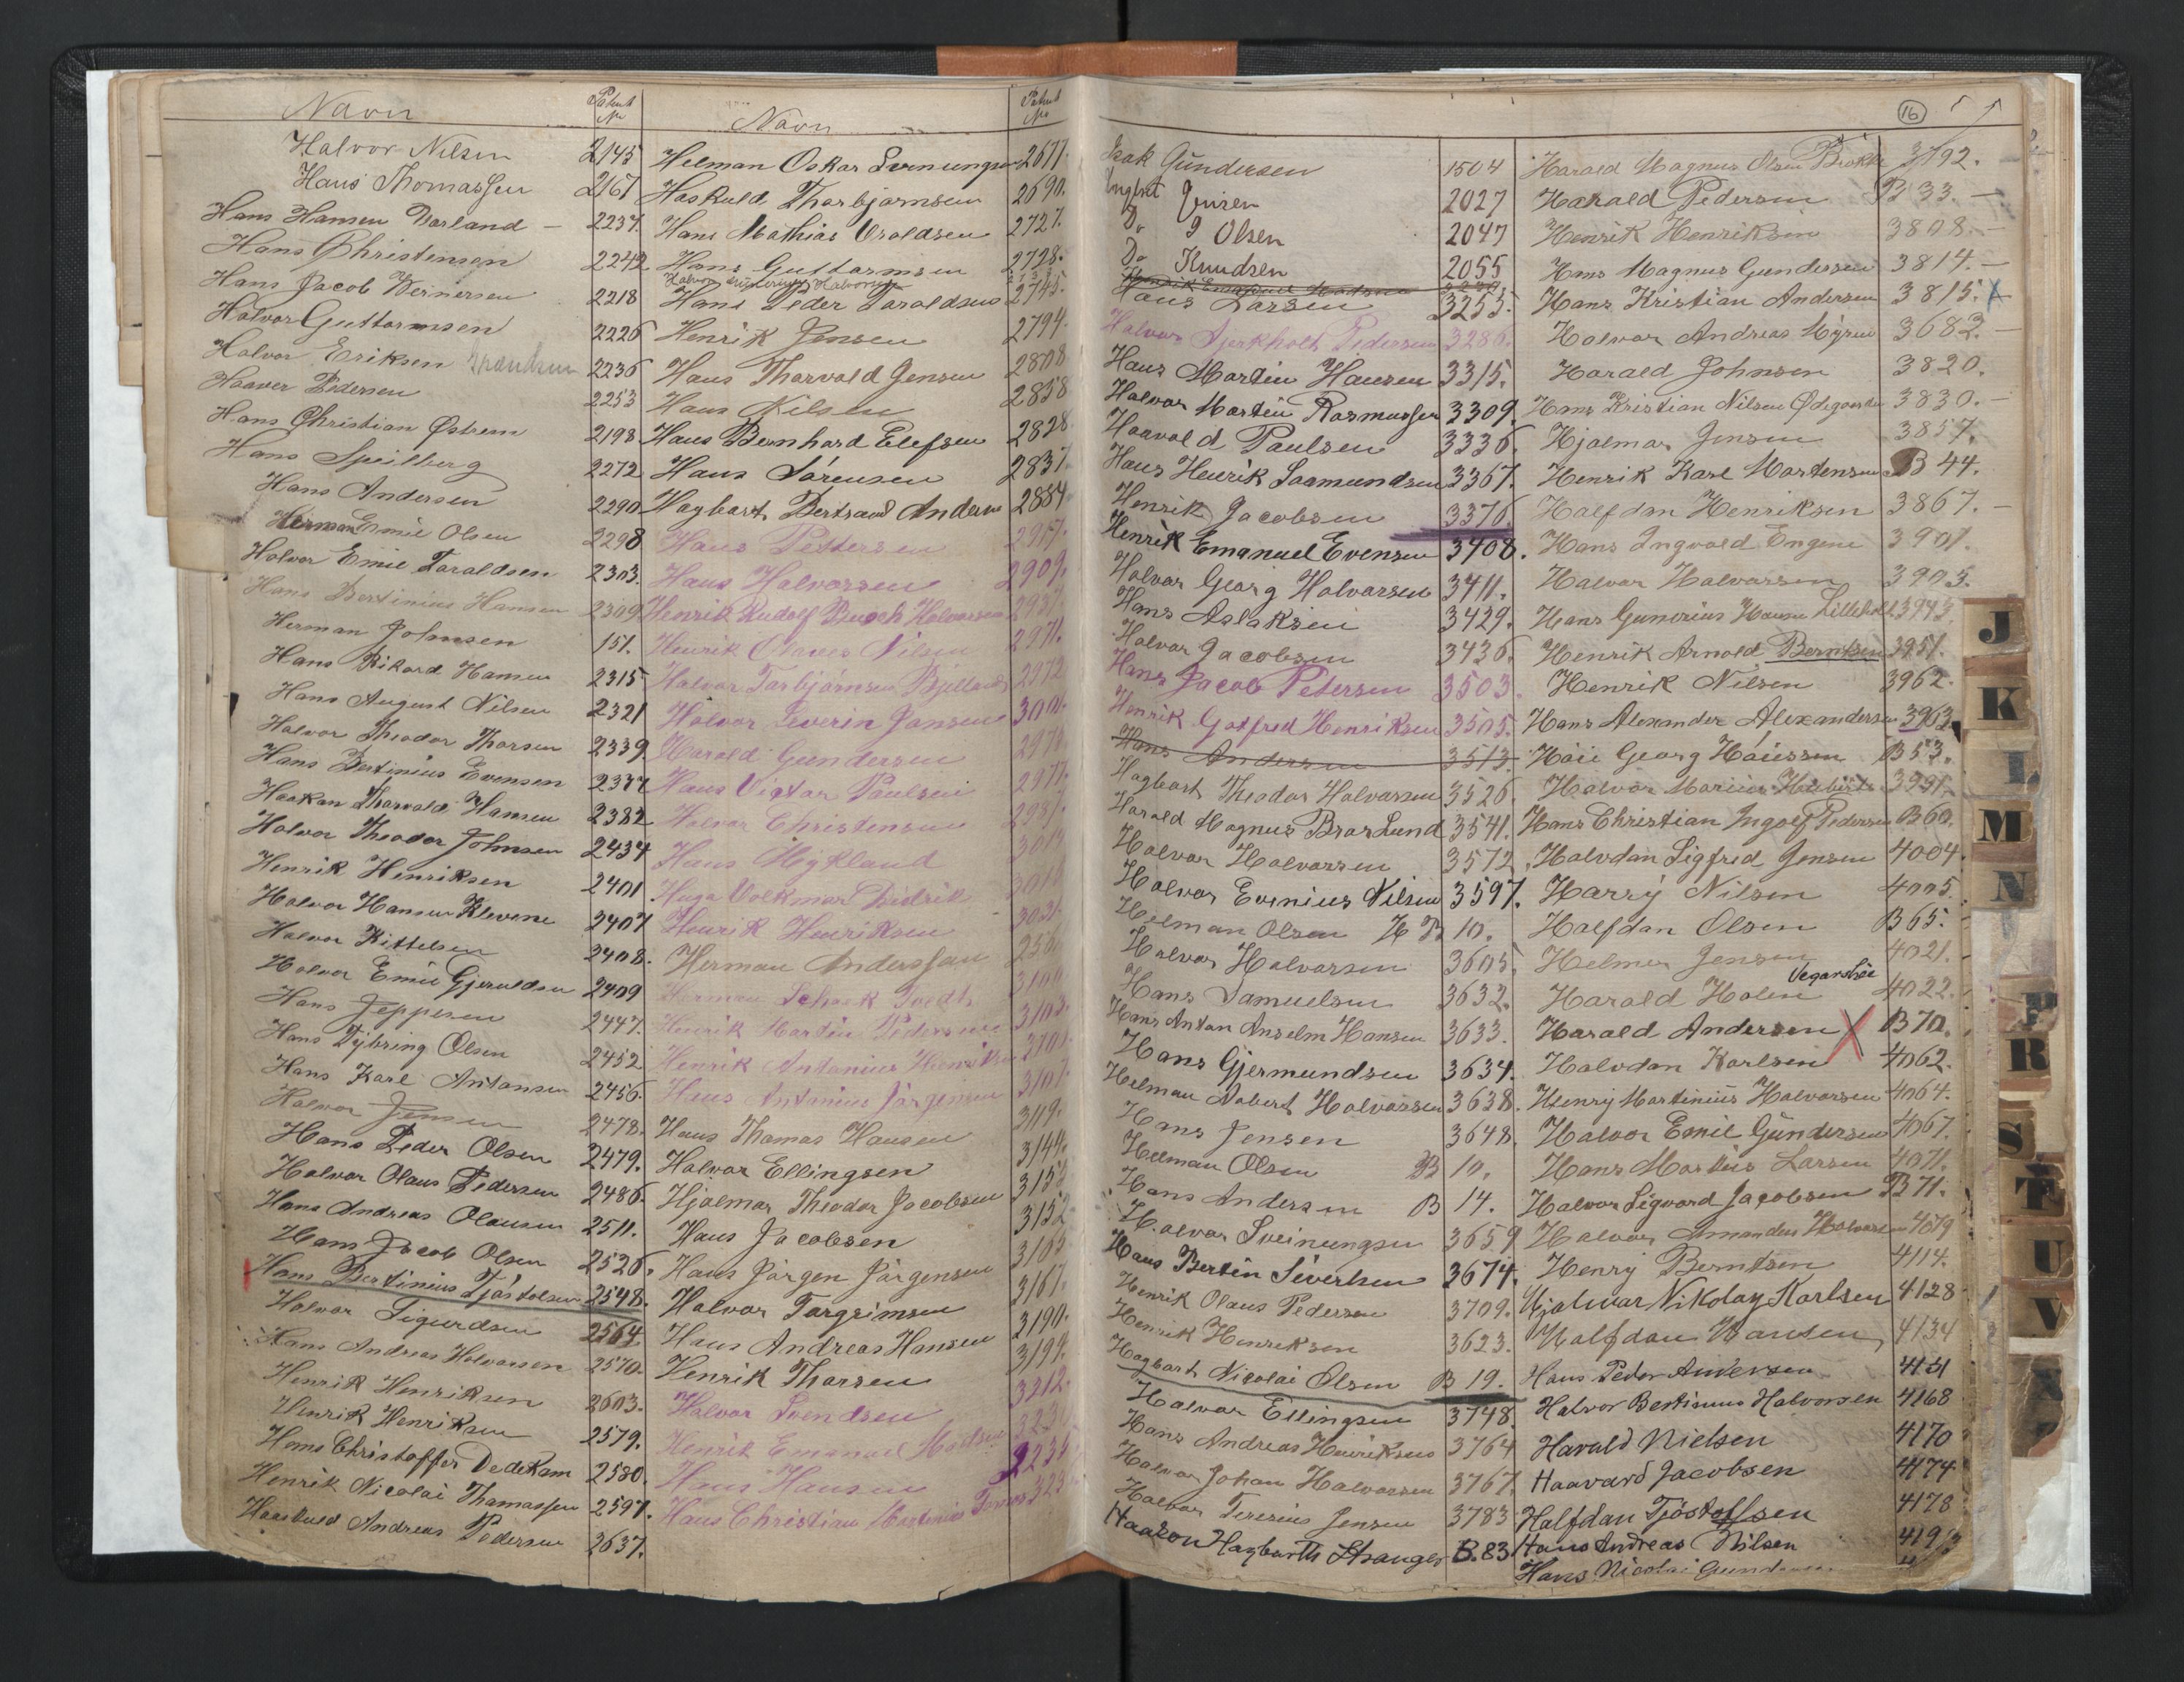 Navn Patent No
Halvor Nilsen 2145
Hans Thomassen 2167
Hans Hansen Darland 2237.
Hans Christensen 2242
Hans Jacob Wernersen 2218
Halvor Guttormsen 2226
Halvor Eriksen 2236
Haaver Pedersen 2253
Hans Christian Østrem 2198
Hans Speilberg 2272
Hans Andersen 2290
Herman Emil Olsen 2298
Halvor Emil Taraldsen 2303.
Hans Bertinius Hansen 2309
Herman Johnsen 151.
Hans Rikard Hansen 2315
Hans August Nilsen 2321
Halvor Theodor Thorsen 2339
Hans Bertinius Evensen 2337
Haakon Thorvald Hansen 2382
Halvor Theodor Johnsen 2434
Henrik Henriksen 2401
Halvor Hansen Klevene 2407
Halvor Kittelsen 2408.
Halvor Emil Gjeruldsen 2409
Hans Jeppesen 2447.
Hans Dybring Olsen 2452
Hans Karl Antonsen 2456.
Halvor Jensen 2478.
Hans Peder Olsen 2479.
Halvor Olaus Pedersen 2486.
Hans Andreas Olausen 2511.
Hans Jacob Olsen 2526.
Hans Bertinius Tjøstolsen 2548.
Halvor Sigurdsen 2564
Hans Andreas Halvorsen 2570.
Henrik Henriksen 2603.
Henrik Henriksen 2579.
Hans Christoffer Dedekam 2580.
Henrik Nicolai Thomassen 2597.
Haaskuld Andreas Pedersen 2637.
Navn Patent No
Helman Oskar Svenungsen 2677.
Haskuld Thorbjørnsen 2690.
Hans Mathias Uraldsen 2727.
Hans Guttormsen 2728.
Halvor Halvorsen
Hans Peder Taraldsen 2745.
Henrik Jensen 2794.
Hans Thorvald Jensen 2808
Hans Nilsen 2858
Hans Bernhard Elefsen 2828
Hans Sørensen 2837.
Hagbart Bertrand Andersen 2884
Hans Pettersen 2917.
Hans Halvorsen 2909.
Henrik Rudolf Busch Halvorsen 2937.
Henrik Olaves Nilsen 2971.
Halvor Torbjørnsen Bjelland 2972
Halvor Severin Jansen 3001.
Harald Gundersen 2976
Hans Victor Paulsen 2977.
Halvor Christensen 2987.
Hans Mykland
Hugo Volkmar Didrik
Henrik Henriksen 3031.
Herman Anderssen
Herman Schack
Henrik Martin Pedersen 3103.
Henrik Antonius Henriksen
Hans Antonius Jørgensen 3107.
Hans Thomas Hansen 3119.
Halvor Ellingsen 3144.
Hjalmar Theodor Jacobsen 3153
Hans Jacobsen 3152
Hans Jørgen Jørgensen 3165
Halvor Torgrimsen 3167.
Hans Andreas Hansen 3190.
Henrik Thorsen 3199.
Halvor Svendsen 3212.
Henrik Emanuel Madsen
Hans Hansen
Hans Christian
Isak Gundersen 1504
Inglret Jensen 2027
Do J Olsen 2047
Do Knudsen 2055
Henrik Emanuel Madsen
Hans Larsen 3255.
Halvor Bjerkholt Pedersen 3286.
Hans Martin Hansen 3315.
Halvor Martin Rasmussen 3309.
Haavald Paulsen 3336.
Hans Henrik Saamundsen 3367.
Henrik Jacobsen 3376.
Henrik Emanuel Evensen 3408.
Halvor Georg Halvorsen 3411.
Hans Aslaksen 3429.
Halvor Jacobsen 3436.
Hans Jacob Petersen 3503.
Henrik Gotfred Henriksen 3505.
Hans Andersen 3513.
Hagbart Theodor Halvorsen 3526.
Harald Magnus Bror Lund 3541.
Halvor Halvorsen 3572.
Halvor Evenius Nilsen 3597.
Helman Olsen B 10.
Halvor Halvorsen 3605.
Hans Samuelsen 3632.
Hans Anton Anselm Hansen 3633.
Hans Gjermundsen 3634.
Helman Nobert Halvorsen 3638.
Hans Jensen 3648.
Helman Olsen B 10.
Hans Andersen B 14.
Halvor Sveinungsen 3659
Hans Bertin Siverlsen 3674.
Henrik Olaus Pedersen 3709.
Henrik Henriksen 3623.
Hagbart Nicolai Olsen B 19.
Halvor Ellingsen 3748.
Hans Andreas Henriksen 3764
Halvor Johan Halvorsen 3767.
Halvor Teresius Jensen 3783
Haakon Hagbarth Stranger B.83
16
Harald Magnus Olsen Brokke 3792.
Harald Pedersen B 33.
Henrik Henriksen 3808.
Hans Magnus Gundersen 3814.
Hans Kristian Andersen 3815.
Halvor Andreas Myren 3682.
Harald Johnsen 3820.
Hans Kristian Nilsen Ødegaarden 3830.
Hjalmar Jensen 3857.
Henrik Karl Mortensen B 44.
Halfdan Henriksen 3867.
Hans Ingvald Engene 3901.
Halvor Halvorsen 3905.
Hans Gunerius Hansen Lilleholt 3943.
Henrik Arnold Berntsen 3951.
Henrik Nilsen 3962.
Hans Alexander Alexandersen 3963
Håii Georg Haüssen B 53.
Halvor Marius 3991.
Hans Christian Ingolf Pedersen B 60.
Halvdan Sigfred Jensen 4004.
Harry Nilsen 4005.
Halfdan Olsen B 65.
Helmer Jensen 4021.
Harald Holen Vegarshei 4022.
Harald Andersen X B 70.
Halvdan Karlsen 4062.
Henry Martinius Halvorsen 4064.
Halvor Emil Gundersen 4067.
Hans Markus Larsen 4071.
Halvor Sigvard Jacobsen B 71.
Halvor Amandus Halvorsen 4079
Henry Berntsen 4114.
Hjalmar Nikolay Karlsen 4128
Halfdan Hansen 4134
Hans Peder Andersen 4151
Halvor Bertinius Halvorsen 4168
Harald Nielsen 4170
Haavard Jacobsen 4174
Halfdan Tjöstoffsen 4178
Hans Andreas Nilsen 4193
Hans Nicolai Gundersen
J
K
L
M
N
P
R
S
T
U
V